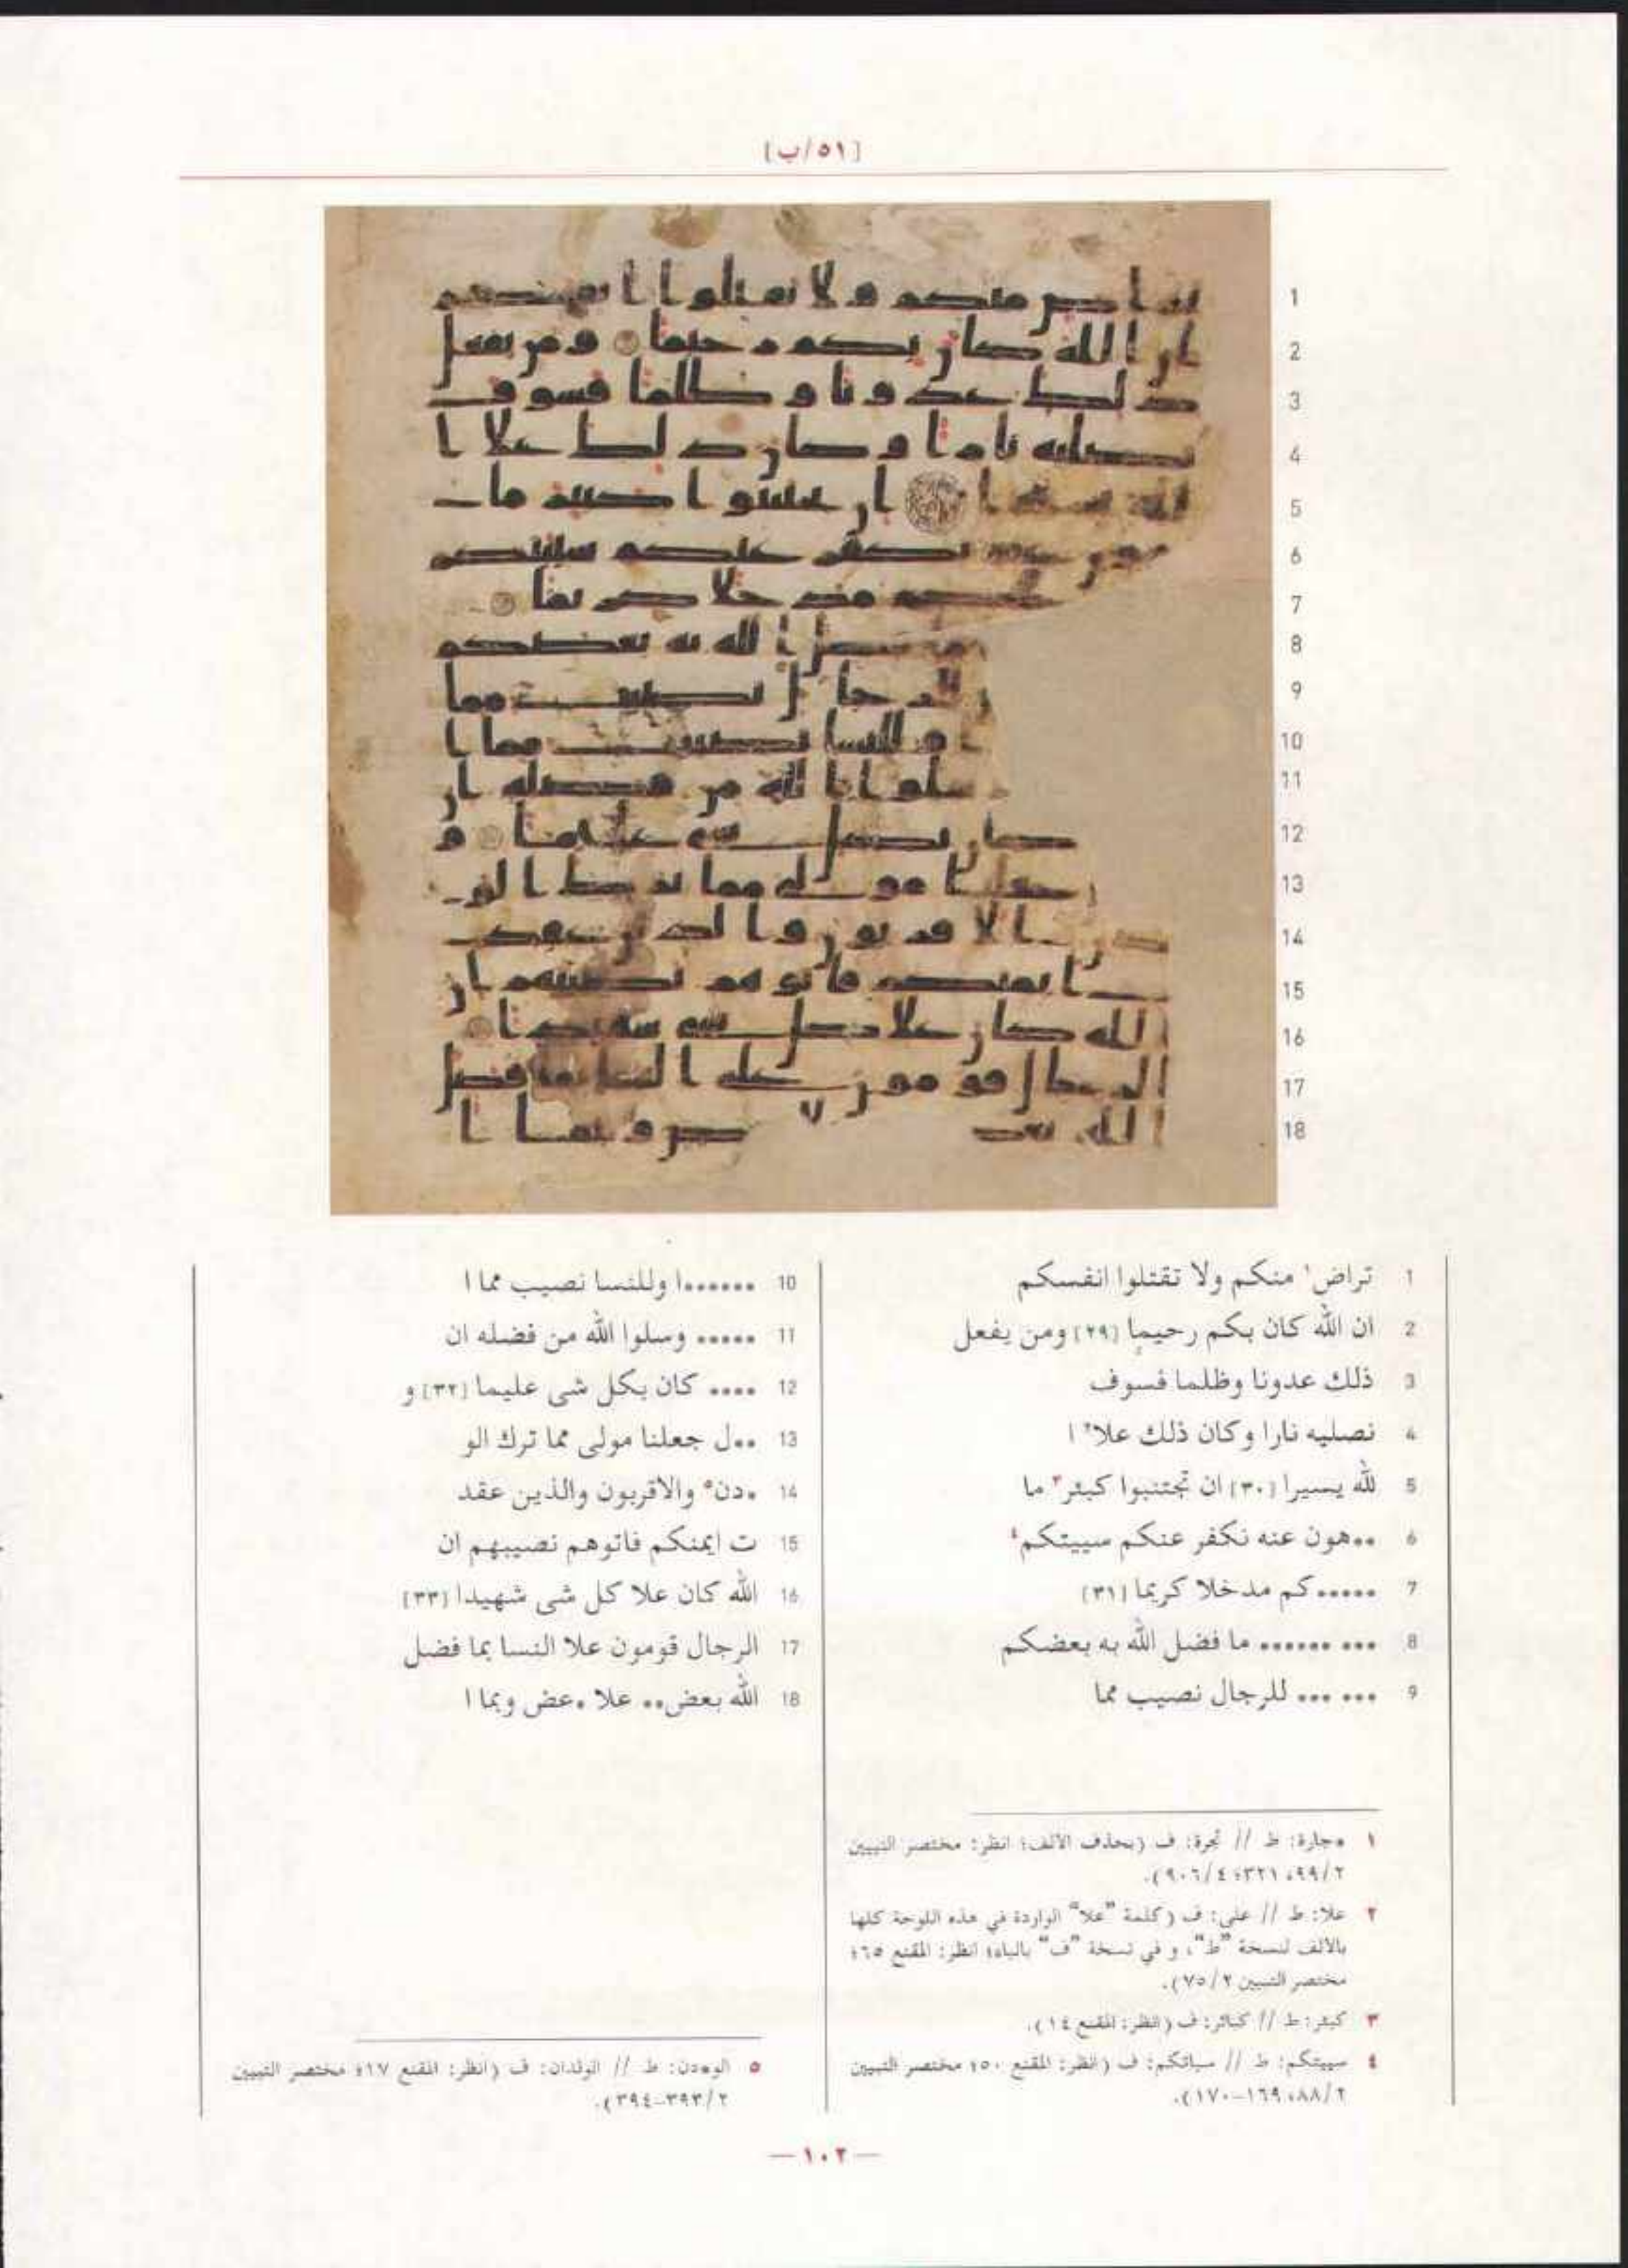 [٥١/ب]
1 تراض١ منكم ولا تقتلوا انفسكم
2 ان الله كان بكم رحيما [٢٩] ومن يفعل
3 ذلك عدونا وظلما فسوف
4 نصليه نارا وكان ذلك علا٢ ا
5 لله يسيرا [٣٠] ان تجتنبوا كبئر٣ ما
6 ••هون عنه نكفر عنكم سييتكم٤
7 •••••كم مدخلا كريما [٣١]
8 ••• •••••• ما فضل الله به بعضكم
9 ••• ••• للرجال نصيب مما
10 ••••••ا وللنسا نصيب مما ا
11 ••••• وسلوا الله من فضله ان
12 •••• كان بكل شى عليما [٣٢] و
13 ••ل جعلنا مولى مما ترك الو
14 •دن٥ والاقربون والذين عقد
15 ت ايمنكم فاتوهم نصيبهم ان
16 الله كان علا كل شى شهيدا [٣٣]
17 الرجال قومون علا النسا بما فضل
18 الله بعض•• علا •عض وبما ا
١ •جارة: ط // تجرة: ف (بحذف الالف؛ انظر: مختصر التبيين
٩٩/٢، ٣٢١؛ ٩٠٦/٤).
٢ علا: ط // على: ف (كلمة "علا" الواردة في هذه اللوحة كلها
بالالف لنسخة "ط"، و في نسخة "ف" بالياء؛ انظر: المقنع ٦٥؛
مختصر التبيين ٧٥/٢).
٣ كبئر: ط // كبائر: ف (انظر: المقنع ١٤).
٤ سييتكم: ط // سياتكم: ف (انظر: المقنع ٥٠؛ مختصر التبيين
٨٨/٢، ١٦٩-١٧٠).
٥ الو•دن: ط // الولدان: ف (انظر: المقنع ١٧؛ مختصر التبيين
٣٩٣/٢-٣٩٤).
— ١٠٢ —